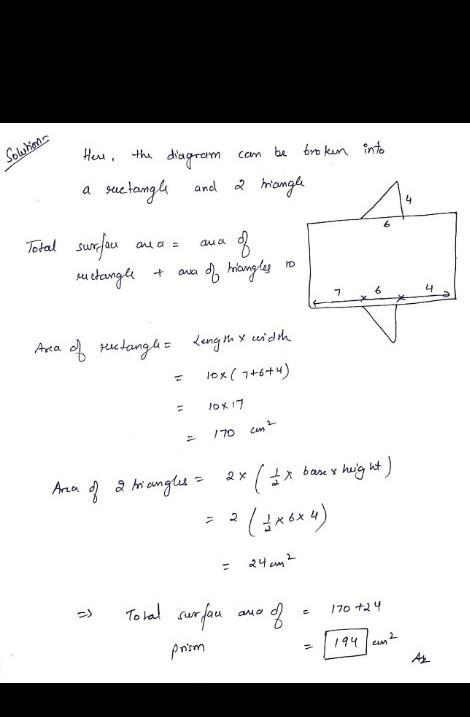 Solution=
Here, the diagram can be broken into
a rectangle and 2 triangle
4
6
Total surface area = area of
rectangle + area of triangles
10
7 6 4
Area of rectangle = Length x width
= 10x(7+6+4)
= 10x17
= 170 cm²
Area of 2 triangles = 2x(1/2 x base x height)
= 2(1/2 x 6 x 4)
= 24 cm²
=> Total surface area of = 170+24
prism = 194 cm²